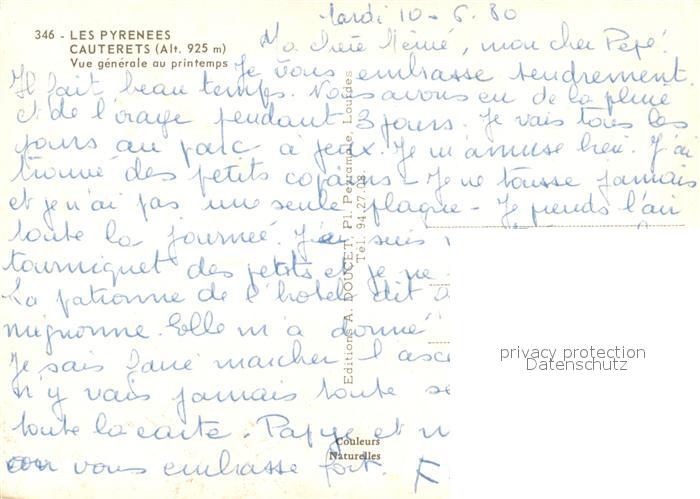 346 - LES PYRENEES
CAUTERETS (Alt. 925 m)
Vue générale au printemps
Mardi 10-6.80
Ma Mémé, mon cher Pépé!
Je vous embrasse tendrement.
Il fait beau temps. Nous avons eu de la pluie
et de l'orage pendant 3 jours. Je vais tous les
jours au parc à jeux. Je m'amuse bien. J'ai
trouvé des petits copains - Je ne tousse jamais
et je n'ai pas une seule plaque - Je prends l'air
toute la journée. suis
tourniquet des petits et je ne
La patronne de l'hôtel dit
mignonne. Elle m'a donné
Je sais faire marcher l'asc
n'y vais jamais toute se
toute la carte. Papy et
vous embrasse fort. F
Editions A. DOUCET, Pl. Peyramale, Lourdes
Tél. 94.27.08
Couleurs
Naturelles
privacy protection
Datenschutz